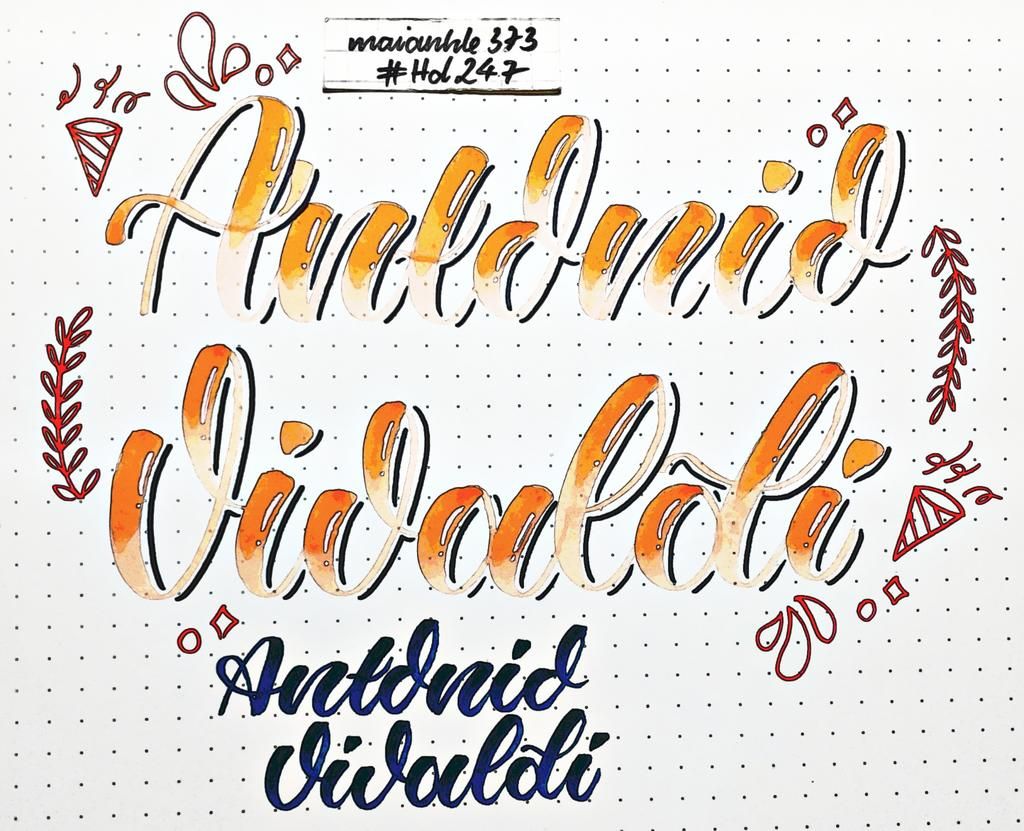 maianhle 373
#Hd 247
Antonio
Vivaldi
Antonio
Vivaldi